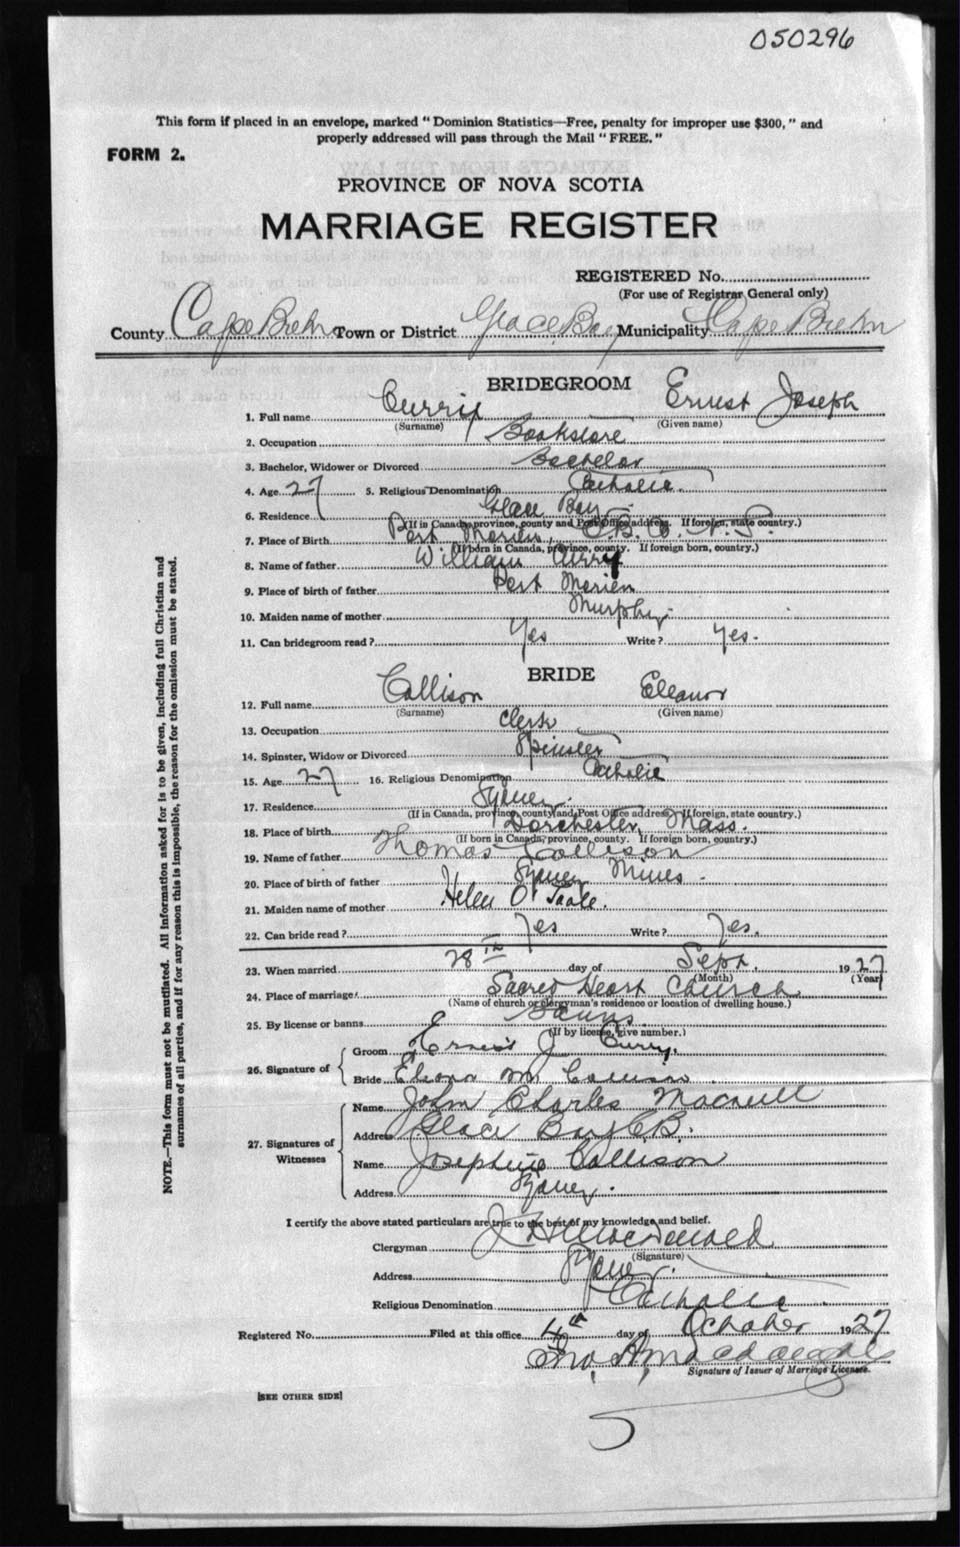 050296
This form if placed in an envelope, marked "Dominion Statistics—Free, penalty for improper use $300," and
properly addressed will pass through the Mail "FREE."
FORM 2.
PROVINCE OF NOVA SCOTIA
MARRIAGE REGISTER
REGISTERED No.
(For use of Registrar General only)
County Cape Breton Town or District Glace Bay Municipality Cape Breton
BRIDEGROOM
1. Full name Curry Ernest Joseph
(Surname) (Given name)
2. Occupation Bookstore
3. Bachelor, Widower or Divorced Bachelor
4. Age 27 5. Religious Denomination Catholic.
6. Residence Glace Bay
(If in Canada, province, county and Post Office address. If foreign, state country.)
7. Place of Birth Port Morien, C.B. Co. N.S.
(If born in Canada, province, county. If foreign born, country.)
8. Name of father William Curry
9. Place of birth of father Port Morien
10. Maiden name of mother Murphy
11. Can bridegroom read? Yes Write? Yes.
BRIDE
12. Full name Collison Eleanor
(Surname) (Given name)
13. Occupation Clerk
14. Spinster, Widow or Divorced Spinster
15. Age 27 16. Religious Denomination Catholic
17. Residence Sydney.
(If in Canada, province, county and Post Office address. If foreign, state country.)
18. Place of birth Dorchester, Mass.
(If born in Canada, province, county. If foreign born, country.)
19. Name of father Thomas Collison
20. Place of birth of father Sydney Mines.
21. Maiden name of mother Helen O'Toole.
22. Can bride read? Yes Write? Yes.
23. When married 28th day of Sept. 1927
(Month) (Year)
24. Place of marriage Sacred Heart Church
(Name of church or clergyman's residence or location of dwelling house.)
25. By license or banns Banns
(If by license, give number.)
26. Signature of
Groom Ernest J Curry.
Bride M Collison
27. Signatures of Witnesses
Name John Charles Macneill
Address Glace Bay C.B.
Name Josephine Collison
Address Sydney.
I certify the above stated particulars are true to the best of my knowledge and belief.
Clergyman MacDonald
(Signature)
Address Sydney.
Religious Denomination Catholic
Registered No. Filed at this office 4th day of October 1927
Jno. A. Macdougall
Signature of Issuer of Marriage Licenses.
[SEE OTHER SIDE]
NOTE.—This form must not be mutilated. All information asked for is to be given, including full Christian and
surnames of all parties, and if for any reason this is impossible, the reason for the omission must be stated.